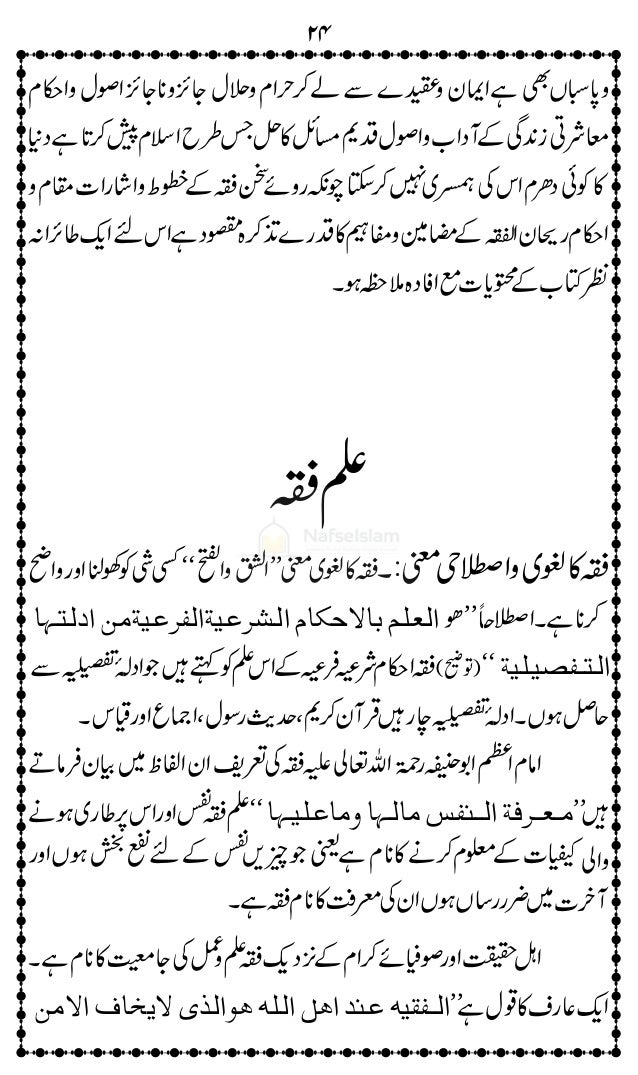 ۲۴
و پاسباں بھی ہے ایمان و عقیدے سے لے کر حرام و حلال جائز و ناجائز اصول و احکام
معاشرتی زندگی کے آداب و اصول قدیم مسائل کا حل جس طرح اسلام پیش کرتا ہے دنیا
کا کوئی دھرم اس کی ہمسری نہیں کرسکتا چونکہ روئے سخن فقہ کے خطوط و اشارات مقام و
احکام ریحان الفقہ کے مضامین و مفاہیم کا قدرے تذکرہ مقصود ہے اس لئے ایک طائرانہ
نظر کتاب کے محتویات مع افادہ ملاحظہ ہو۔
علم فقہ
NafseIslam
فقہ کا لغوی و اصطلاحی معنی:۔ فقہ کا لغوی معنی ’’الشق والفتح‘‘ کسی شی کو کھولنا اور واضح
کرنا ہے۔ اصطلاحاً ’’هو العلم بالاحكام الشرعية الفرعية من ادلتها
التفصيلية‘‘ (توضیح) فقہ احکام شرعیہ فرعیہ کے اس علم کو کہتے ہیں جو ادلۂ تفصیلیہ سے
حاصل ہوں۔ ادلۂ تفصیلیہ چار ہیں قرآن کریم، حدیث رسول، اجماع اور قیاس۔
امام اعظم ابو حنیفہ رحمۃ اللہ تعالی علیہ فقہ کی تعریف ان الفاظ میں بیان فرماتے
ہیں ’’معرفة النفس مالها وماعليها‘‘ علم فقہ نفس اور اس پر طاری ہونے
والی کیفیات کے معلوم کرنے کا نام ہے یعنی جو چیزیں نفس کے لئے نفع بخش ہوں اور
آخرت میں ضرر رساں ہوں ان کی معرفت کا نام فقہ ہے۔
اہل حقیقت اور صوفیائے کرام کے نزدیک فقہ علم و عمل کی جامعیت کا نام ہے۔
ایک عارف کا قول ہے ’’الفقيه عند اهل الله هو الذى لايخاف الامن